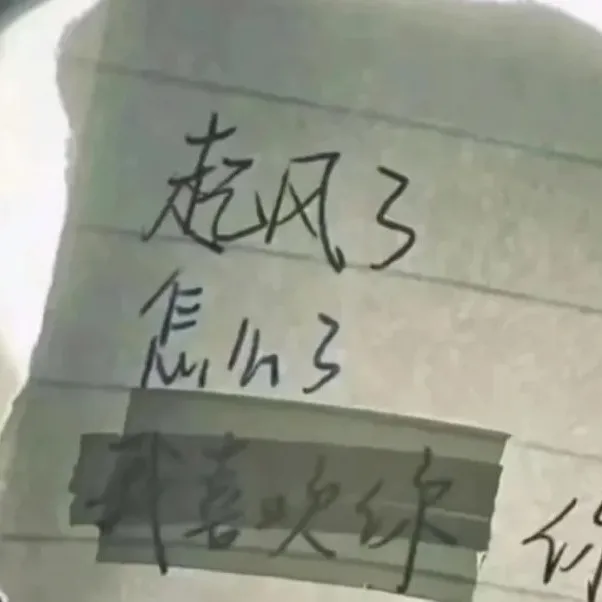 起风了
怎么了
我喜欢你